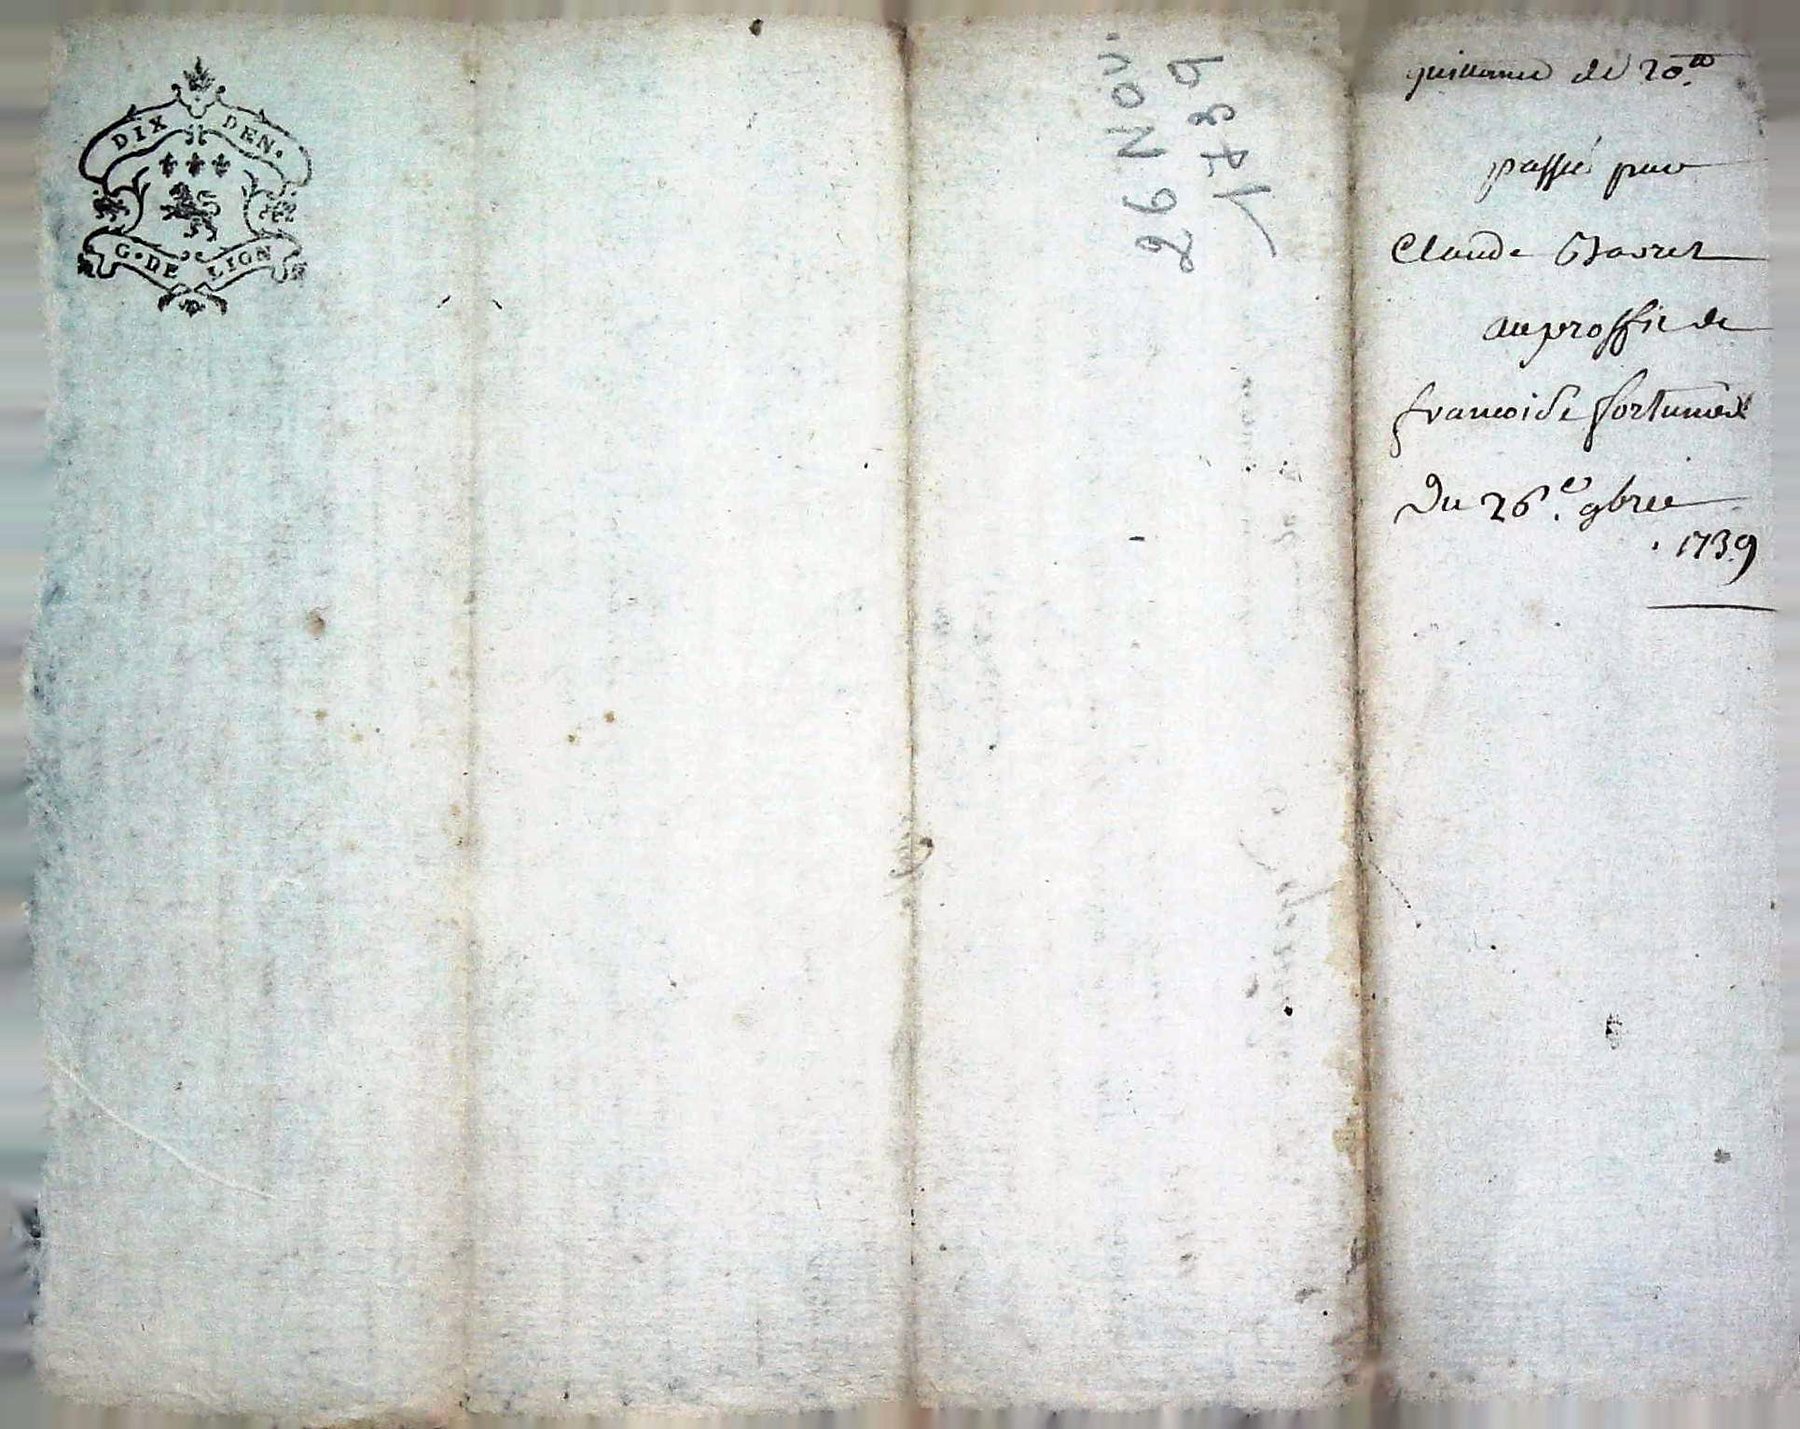 DIX DEN.
G. DE LION
26 NOV.
1739
quittance de 20.tt
passée par
Claude
au proffit de
francoise fortunée
Du 26.e 9bre
. 1739